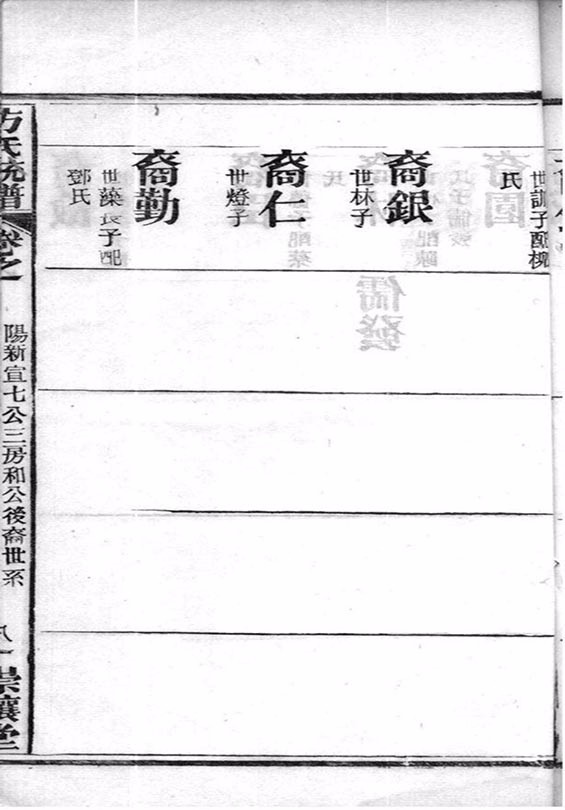 世訓子配柳
氏
裔銀
世林子
裔仁
世燈子
裔勤
世藻長子配
鄧氏
方氏統譜
卷之一
陽新宣七公三房和公後裔世系
八一